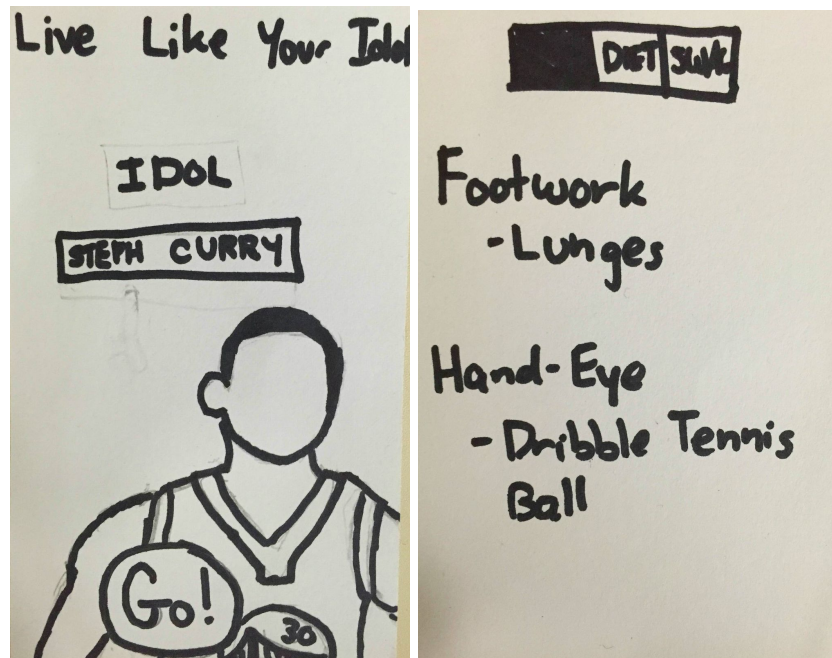 Live Like Your Idol
IDOL
STEPH CURRY
Go!
30
DIET
Footwork
-Lunges
Hand-Eye
-Dribble Tennis
Ball